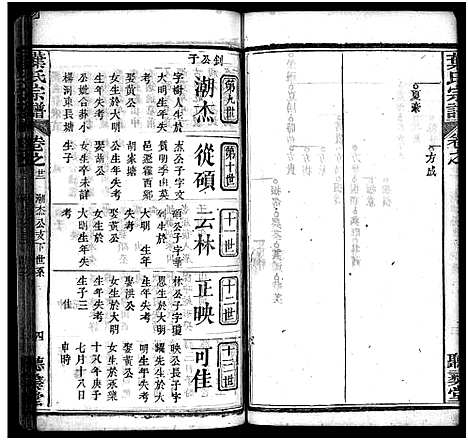 葉氏宗譜
卷之
夏泰
方成
聽彝堂
釗公子
第九世
潮杰
字樹人生於
大明
生年失考
娶黃公
女生於大明
生年失考
公妣合葬小
楊河東長塘
生子
第十世
從碩
杰公子字文
質明季由英
邑遷霍西鄉
胡家塘
娶葉公
女生卒未詳
生子
十一世
云林
碩公子字華
生於
大明
生年
失考
娶公
女生於
大明生年失
考
十二世
正映
林公子字瓊
生於大明
生年失考
娶洪公
女生於大明
生年失考
生子二
佳
十三世
可佳
映公長子字
耀先生於大
明
生年失考
娶黃公
女生於崇禎
十八年庚子
七月十八日
申時
葉氏宗譜
卷之
潮杰公支下世系
四
聽彝堂